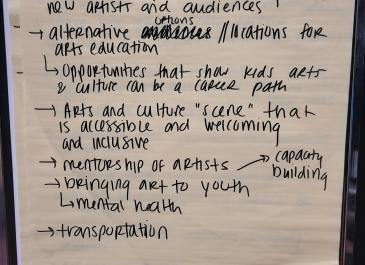 new artists and audiences
→ alternative options // locations for
arts education
↳ Opportunities that show kids arts
& culture can be a career path
→ Arts and culture "scene" that
is accessible and welcoming
and inclusive
→ mentorship of artists → capacity
building
→ bringing art to youth
↳ mental health
→ transportation